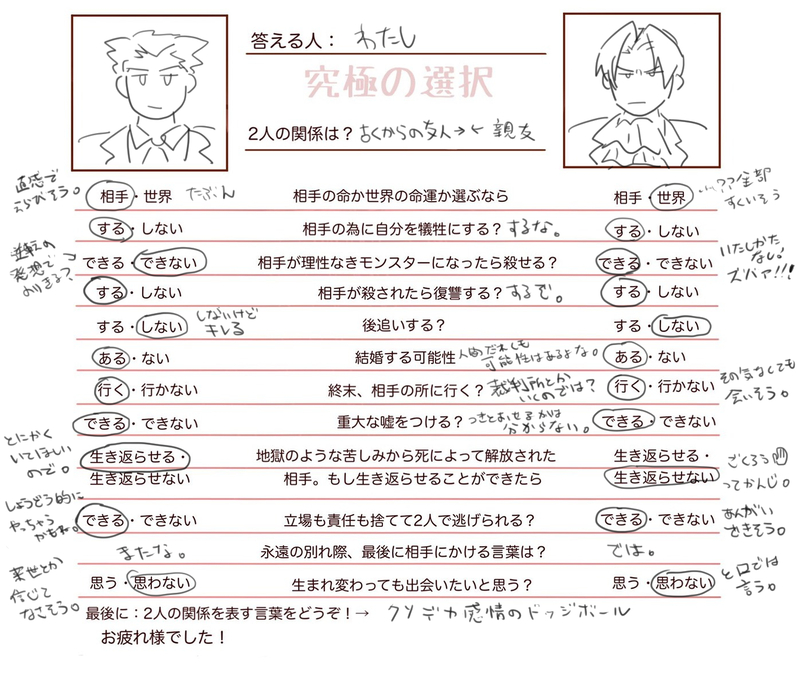 答える人： わたし
究極の選択
2人の関係は？ 古くからの友人→← 親友
直感で
えらびそう。
相手・世界 たぶん 相手の命か世界の命運か選ぶなら 相手・世界
…??全部
すくいそう
する・しない 相手の為に自分を犠牲にする？ するな。 する・しない
逆転の
発想で
のりきる？
できる・できない 相手が理性なきモンスターになったら殺せる？ できる・できない
いたしかた
なし！
ズバァ!!!
する・しない 相手が殺されたら復讐する？ するで。 する・しない
する・しない しないけど
キレる
後追いする？ する・しない
ある・ない 結婚する可能性 人間だれしも
可能性はあるよな。
ある・ない
行く・行かない 終末、相手の所に行く？ 裁判所とか
いくのでは？
行く・行かない
その気なくても
会いそう。
できる・できない 重大な嘘をつける？ つきとおせるかは
分からない。
できる・できない
とにかく
いてほしい
ので。
生き返らせる・ 地獄のような苦しみから死によって解放された 生き返らせる・
生き返らせない 相手。もし生き返らせることができたら 生き返らせない
ごくろう
ってかんじ。
しょうどう的に
やっちゃう
かもね。
できる・できない 立場も責任も捨てて2人で逃げられる？ できる・できない
あんがい
できそう。
またな。 永遠の別れ際、最後に相手にかける言葉は？ では。
来世とか
信じて
なさそう。
思う・思わない 生まれ変わっても出会いたいと思う？ 思う・思わない
と口では
言う。
最後に：2人の関係を表す言葉をどうぞ！→ クソデカ感情のドッジボール
お疲れ様でした！